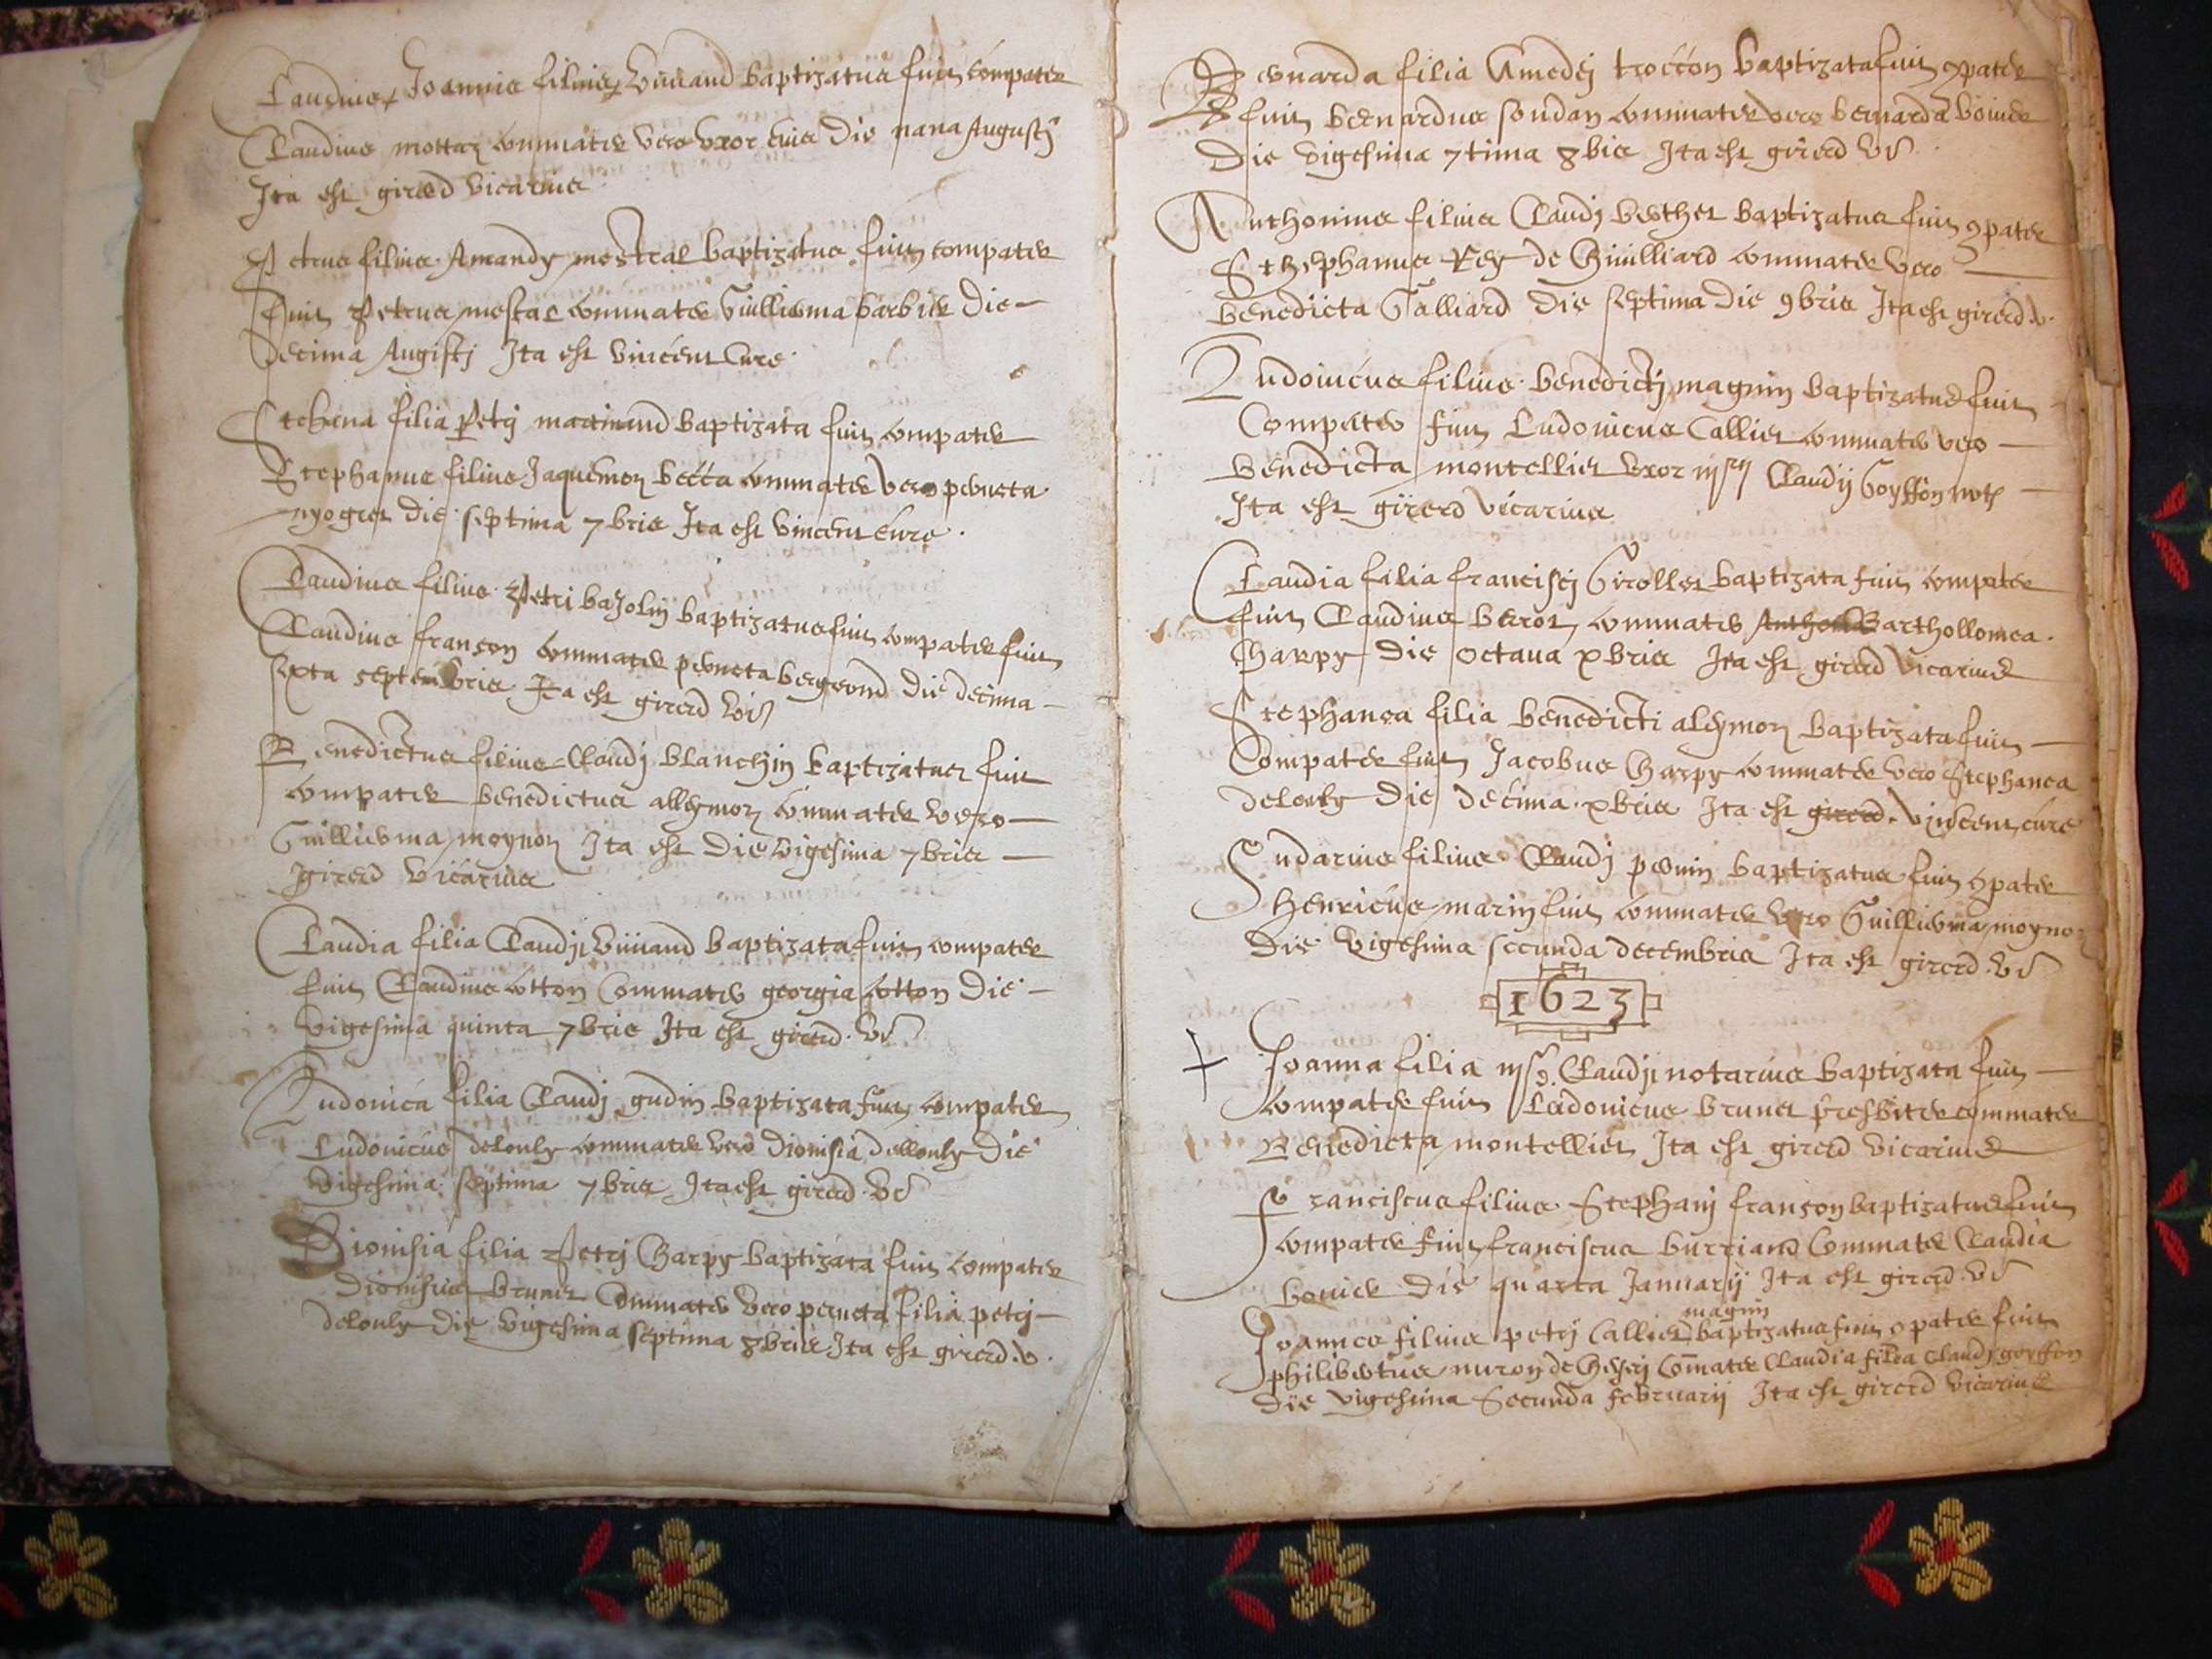 Claudius Joannis filius Vuiand baptizatus fuit compater
Claudius mottaz commater vero uxor eius die nana Augusti
Ita est girerd vicarius
Petrus filius Amandy mestral baptizatus fuit compater
fuit Petrus mestal commater Guillierma barbier die
decima Augisti Ita est Vincent Cure
Stehena filia Petri martinand baptizata fuit compater
Stephanus filius Jaquemoz becta commater vero perneta
nyogret die septima 7bris Ita est Vincent Cure
Claudius filius Petri baJolin baptizatus fuit compater fuit
Claudius françon commater perneta bergerond die decima
sexta septembris Ita est girerd vis
Benedictus filius Claudj blanchin baptizatus fuit
compater benedictus alleymoz commater vero
Guillierma moynoz Ita est die vigesima 7bris
girerd vicarius
Claudia filia Claudji Vuiand baptizata fuit compater
fuit Claudius cotton Commater georgia cotton die
vigesima quinta 7bris Ita est girerd vs
Ludovica filia Claudj gudin baptizata fuit compater
Ludovicus delouly commater vero dionisia dellouly die
vigesima septima 7bris Ita est girerd vs
Dionisia filia Petrj Charpy baptizata fuit compater
dionisius brunet Commater vero perneta filia petrj
delouly die vigesima septima 8bris Ita est girerd v.
Bernarda filia Amedej troccon baptizata fuit 9pater
fuit bernardus soudan commater vero bernarda boiuer
die vigesima 7tima 8bis Ita est girerd vs
Anthonius filius Claudj berthet baptizatus fuit 9pater
Sthephanus Rey de Chiulliard commater vero
benedicta Galliard die septima die 9bris Ita est girerd v.
Ludovicus filius benedictj magnin baptizatus fuit
Compater fuit Ludovicus Calliet commater vero
benedicta montellier uxor Claudij Goyffon
Ita est girerd vicarius
Claudia filia francisci Girollet baptizata fuit compater
fuit Claudius berrot commater Barthollomea
Charpy die octava xbris Ita est girerd vicarius
Stephanea filia benedicti aleymoz baptizata fuit
Compater fuit Jacobus Charpy commater vero Stephanea
delouly die decima xbris Ita est girerd Vincent cure
Sudarius filius Claudj pernin baptizatus fuit 9pater
henricus marin fuit commater vero Guillierma moynoz
die vigesima secunda decembris Ita est girerd vs
1623
Joanna filia Claudji notarius baptizata fuit
compater fuit Ludovicus brunet presbiter commater
Benedicta montellier Ita est girerd vicarius
Franciscus filius Stephanj françon baptizatus fuit
compater fuit franciscus burriand Commater Claudia
boner die quarta Januarij Ita est girerd vs
magnin
Joannes filius petrj Calliet baptizatus fuit 9pater fuit
philibertus muron de Comater Claudia filia Claudj goyffon
die vigesima Secunda februarij Ita est girerd vicarius